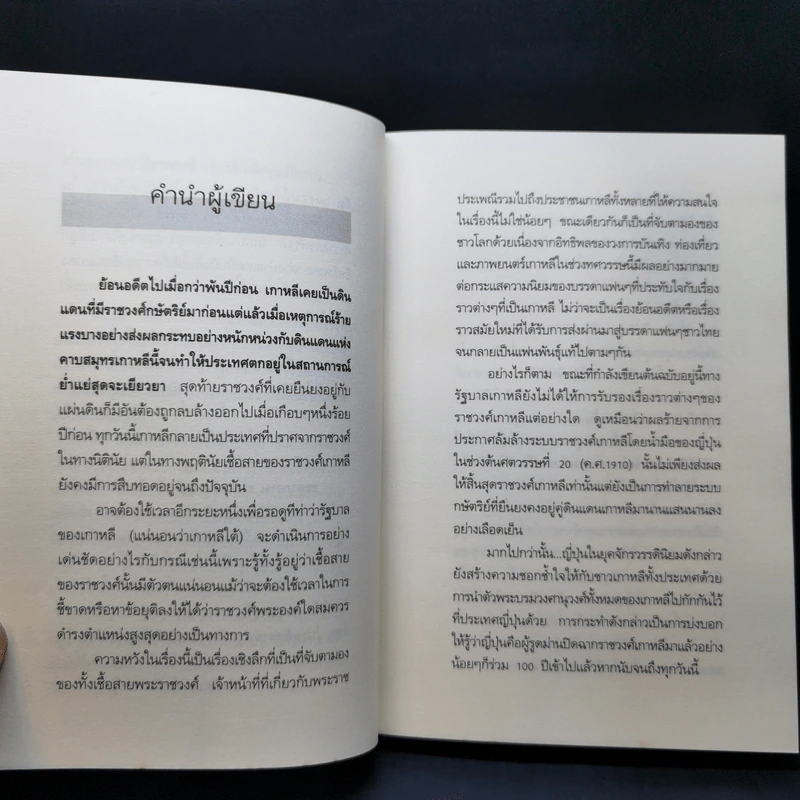 คำนำผู้เขียน
ย้อนอดีตไปเมื่อกว่าพันปีก่อน เกาหลีเคยเป็นดิน
แดนที่มีราชวงศ์กษัตริย์มาก่อนแต่แล้วเมื่อเหตุการณ์ร้าย
แรงบางอย่างส่งผลกระทบอย่างหนักหน่วงกับดินแดนแห่ง
คาบสมุทรเกาหลีนี้จนทำให้ประเทศตกอยู่ในสถานการณ์
ย่ำแย่สุดจะเยียวยา สุดท้ายราชวงศ์ที่เคยยืนยงอยู่กับ
แผ่นดินก็มีอันต้องถูกลบล้างออกไปเมื่อเกือบๆหนึ่งร้อย
ปีก่อน ทุกวันนี้เกาหลีกลายเป็นประเทศที่ปราศจากราชวงศ์
ในทางนิตินัย แต่ในทางพฤตินัยเชื้อสายของราชวงศ์เกาหลี
ยังคงมีการสืบทอดอยู่จนถึงปัจจุบัน
อาจต้องใช้เวลาอีกระยะหนึ่งเพื่อรอดูทีท่าว่ารัฐบาล
ของเกาหลี (แน่นอนว่าเกาหลีใต้) จะดำเนินการอย่าง
เด่นชัดอย่างไรกับกรณีเช่นนี้เพราะรู้ทั้งรู้อยู่ว่าเชื้อสาย
ของราชวงศ์นั้นมีตัวตนแน่นอนแม้ว่าจะต้องใช้เวลาในการ
ชี้ขาดหรือหาข้อยุติลงให้ได้ว่าราชวงศ์พระองค์ใดสมควร
ดำรงตำแหน่งสูงสุดอย่างเป็นทางการ
ความหวังในเรื่องนี้เป็นเรื่องเชิงลึกที่เป็นที่จับตามอง
ของทั้งเชื้อสายพระราชวงศ์ เจ้าหน้าที่ที่เกี่ยวกับพระราช
ประเพณีรวมไปถึงประชาชนเกาหลีทั้งหลายที่ให้ความสนใจ
ในเรื่องนี้ไม่ใช่น้อยๆ ขณะเดียวกันก็เป็นที่จับตามองของ
ชาวโลกด้วยเนื่องจากอิทธิพลของวงการบันเทิง ท่องเที่ยว
และภาพยนตร์เกาหลีในช่วงทศวรรษนี้มีผลอย่างมากมาย
ต่อกระแสความนิยมของบรรดาแฟนๆที่ประทับใจกับเรื่อง
ราวต่างๆที่เป็นเกาหลี ไม่ว่าจะเป็นเรื่องย้อนอดีตหรือเรื่อง
ราวสมัยใหม่ที่ได้รับการส่งผ่านมาสู่บรรดาแฟนๆชาวไทย
จนกลายเป็นแฟนพันธุ์แท้ไปตามๆกัน
อย่างไรก็ตาม ขณะที่กำลังเขียนต้นฉบับอยู่นี้ทาง
รัฐบาลเกาหลียังไม่ได้ให้การรับรองเรื่องราวต่างๆของ
ราชวงศ์เกาหลีแต่อย่างใด ดูเหมือนว่าผลร้ายจากการ
ประกาศล้มล้างระบบราชวงศ์เกาหลีโดยน้ำมือของญี่ปุ่น
ในช่วงต้นศตวรรษที่ 20 (ค.ศ.1910) นั้นไม่เพียงส่งผล
ให้สิ้นสุดราชวงศ์เกาหลีเท่านั้นแต่ยังเป็นการทำลายระบบ
กษัตริย์ที่ยืนยงคงอยู่คู่ดินแดนเกาหลีมานานแสนนานลง
อย่างเลือดเย็น
มากไปกว่านั้น...ญี่ปุ่นในยุคจักรวรรดินิยมดังกล่าว
ยังสร้างความชอกช้ำใจให้กับชาวเกาหลีทั้งประเทศด้วย
การนำตัวพระบรมวงศานุวงศ์ทั้งหมดของเกาหลีไปกักกันไว้
ที่ประเทศญี่ปุ่นด้วย การกระทำดังกล่าวเป็นการบ่งบอก
ให้รู้ว่าญี่ปุ่นคือผู้รูดม่านปิดฉากราชวงศ์เกาหลีมาแล้วอย่าง
น้อยๆก็ร่วม 100 ปีเข้าไปแล้วหากนับจนถึงทุกวันนี้